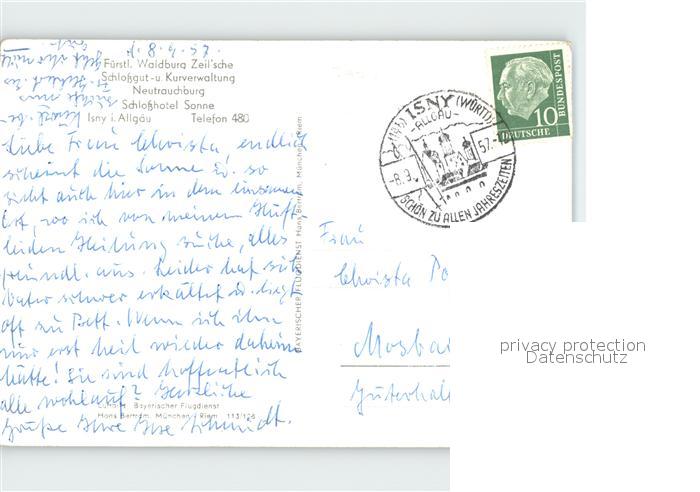 8.9.57.
Fürstl. Waldburg Zeil'sche
Schloßgut- u. Kurverwaltung
Neutrauchburg
Schloßhotel Sonne
Isny i. Allgäu Telefon 480
Liebe Frau Christa endlich
scheint die Sonne u. so
sieht auch hier in dem einsamen
Ort, wo ich von meinem Hüft-
leiden Heilung suche, alles
freundl. aus. Leider hat sich
Vater schwer erkältet u. liegt
oft zu Bett. Wenn ich ihn
nur erst heil wieder daheim
hätte! Sie sind hoffentlich
alle wohlauf? Herzliche
Grüße Ihre Ilse Schmidt.
Bayerischer Flugdienst
Hans Bertram, München-Riem 113/126
BAYERISCHER FLUGDIENST Hans Bertram, München-Riem
ISNY (WÜRTT)
ALLGÄU
-8.9. 57.
SCHÖN ZU ALLEN JAHRESZEITEN
10
DEUTSCHE
BUNDESPOST
Frau
Christa
Mosba
privacy protection
Datenschutz